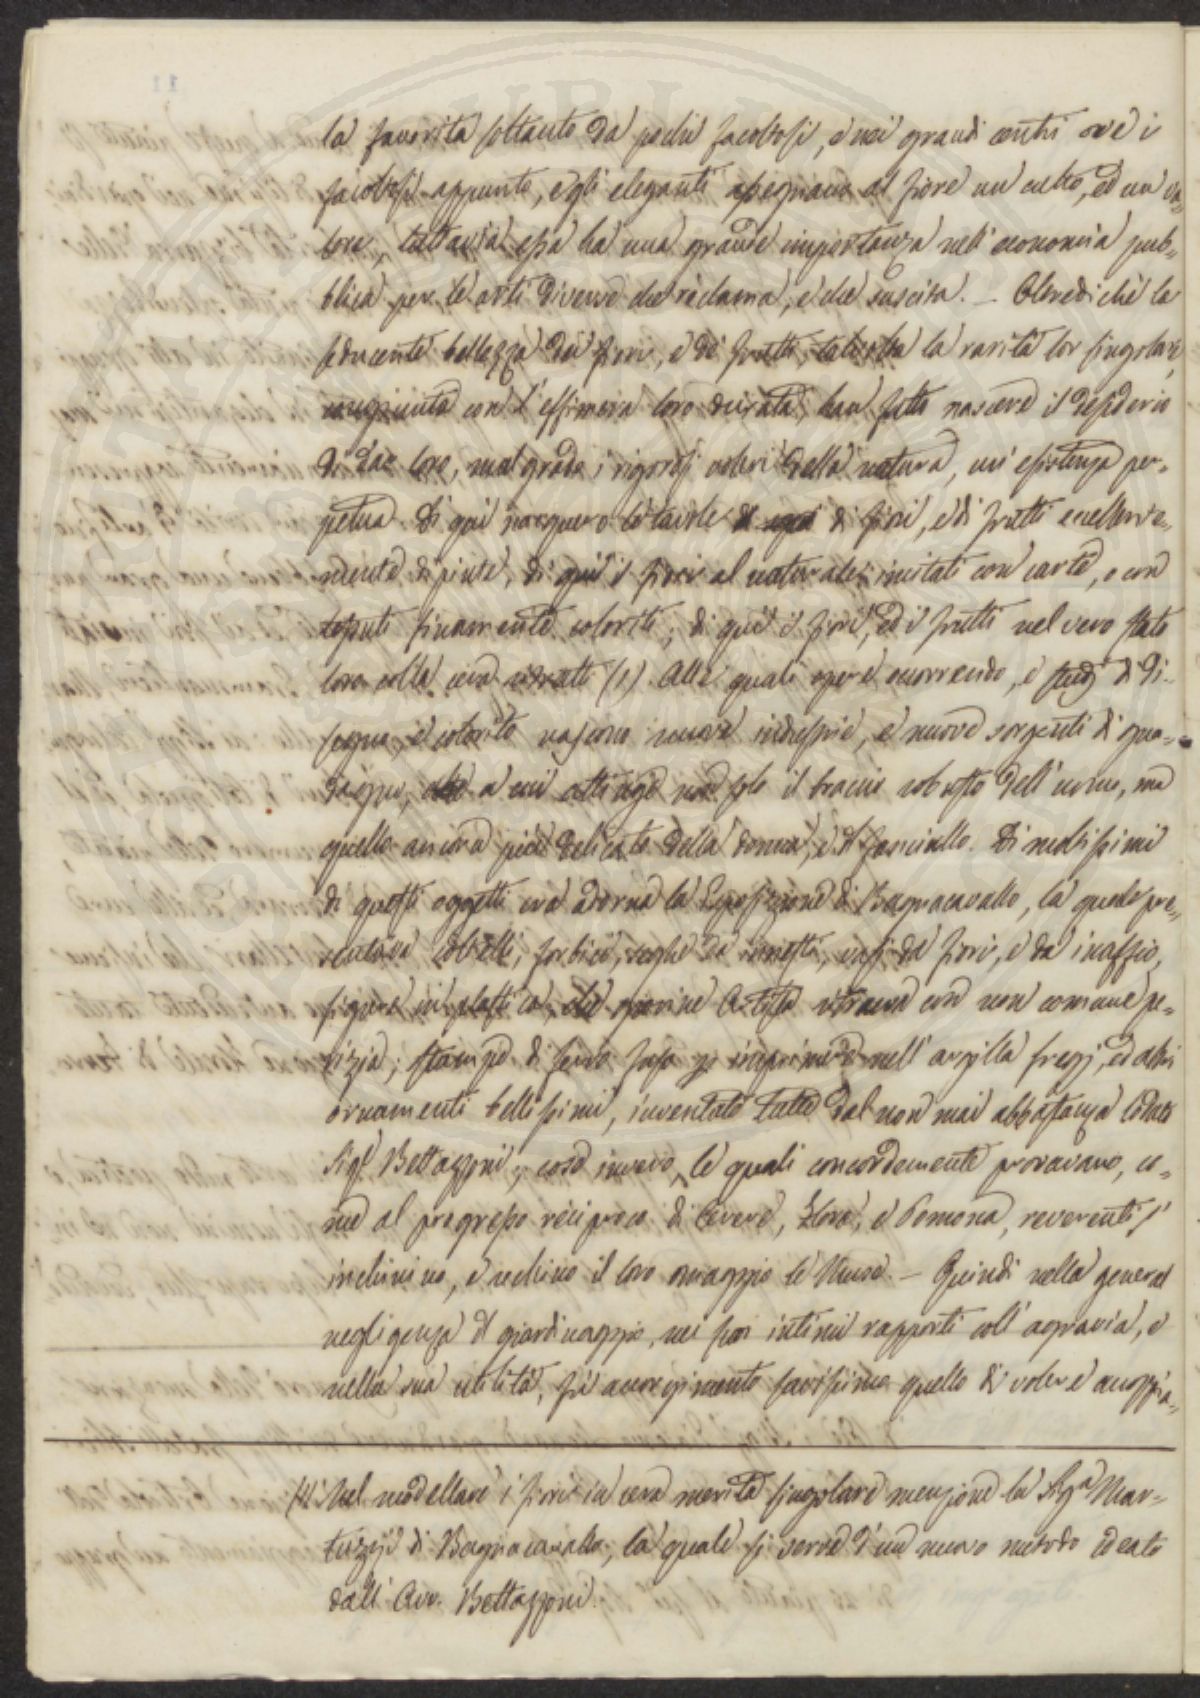 la favorita soltanto da pochi facoltosi, e nei grandi centri ov'è i
facoltosi appunto, e gli eleganti assegnano al fiore un culto, ed un va-
lore, tuttavia essa ha una grande importanza nell'economia pub-
blica per le arti diverse che reclama, e che suscita. — Oltredichè la
seducente bellezza dei fiori, e di frutti, talvolta la rarità lor singolare,
congiunta con l'effimera loro durata, han fatto nascere il desiderio
di dar loro, malgrado i rigorosi voleri della natura, un'esistenza per-
petua. Di qui nacquero le tavole di fiori, e di frutti eccellente-
mente dipinte, di qui i fiori al naturale imitati con carte, o con
tessuti finamente coloriti; di qui i fiori, ed i frutti nel vero stato
loro colla cera ritratti (1). Alle quali opere occorrendo, e studj di di-
segno, e colorito nascono nuove industrie, e nuove sorgenti di gua-
dagno, a cui attinge non solo il braccio robusto dell'uomo, ma
quello ancora più delicato della donna, e del fanciullo. Di moltissimi
di questi oggetti era adorna la Esposizione di Bagnacavallo, la quale pre-
sentava coltelli, forbici, seghe da innesti, vasi da fiori, e da inaffio,
figure in plastica, che giovine Artista ritraeva con non comune pe-
rizia; stampe di ferro fuso per imprimere nell'argilla fregj, ed altri
ornamenti bellissimi, inventate tutte dal non mai abbastanza lodato
Sigr. Bettazzoni; cose invero, le quali concordemente provavano, co-
me al progresso reciproco di Cerere, Flora, e Pomona, reverenti s'
inchinino, e rechino il loro omaggio le Muse. — Quindi nella general
negligenza del giardinaggio, nei suoi intimi rapporti coll'agraria, e
nella sua utilità, fu accorgimento savissimo quello di volere accoppia-
(1) Nel modellare i fiori in cera merita singolare menzione la Siga. Mar-
tuzzi di Bagnacavallo, la quale si serve d'un nuovo metodo ideato
dall'Avv. Bettazzoni.